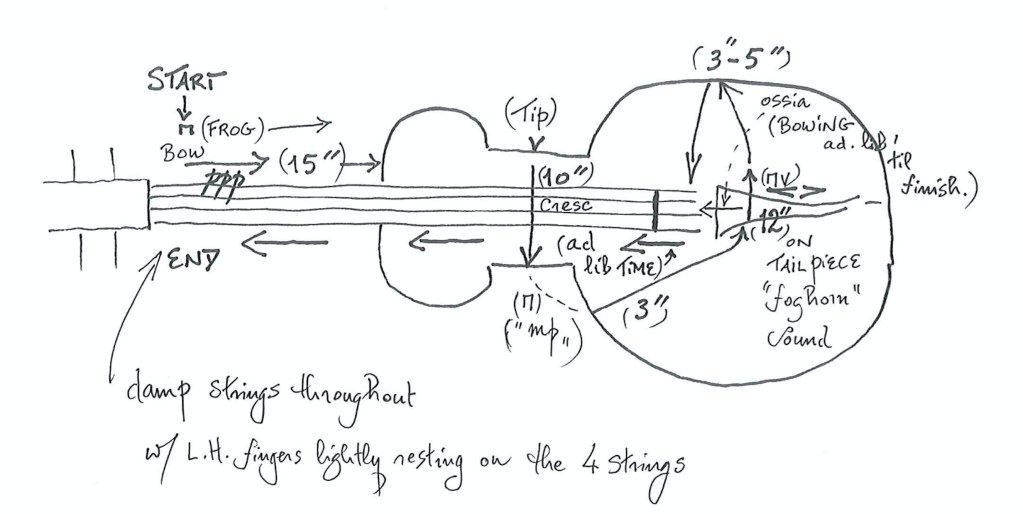 (3"-5")
START
(FROG)
Bow
(15")
ppp
(Tip)
(10")
Cresc
ossia
(BOWING
ad. lib
'til
finish.)
(⊓V)
(12")
ON
TAILPIECE
"foghorn"
Sound
(ad
lib TIME)
(3")
(⊓)
("mp")
END
damp strings throughout
w/ L.H. fingers lightly resting on the 4 strings